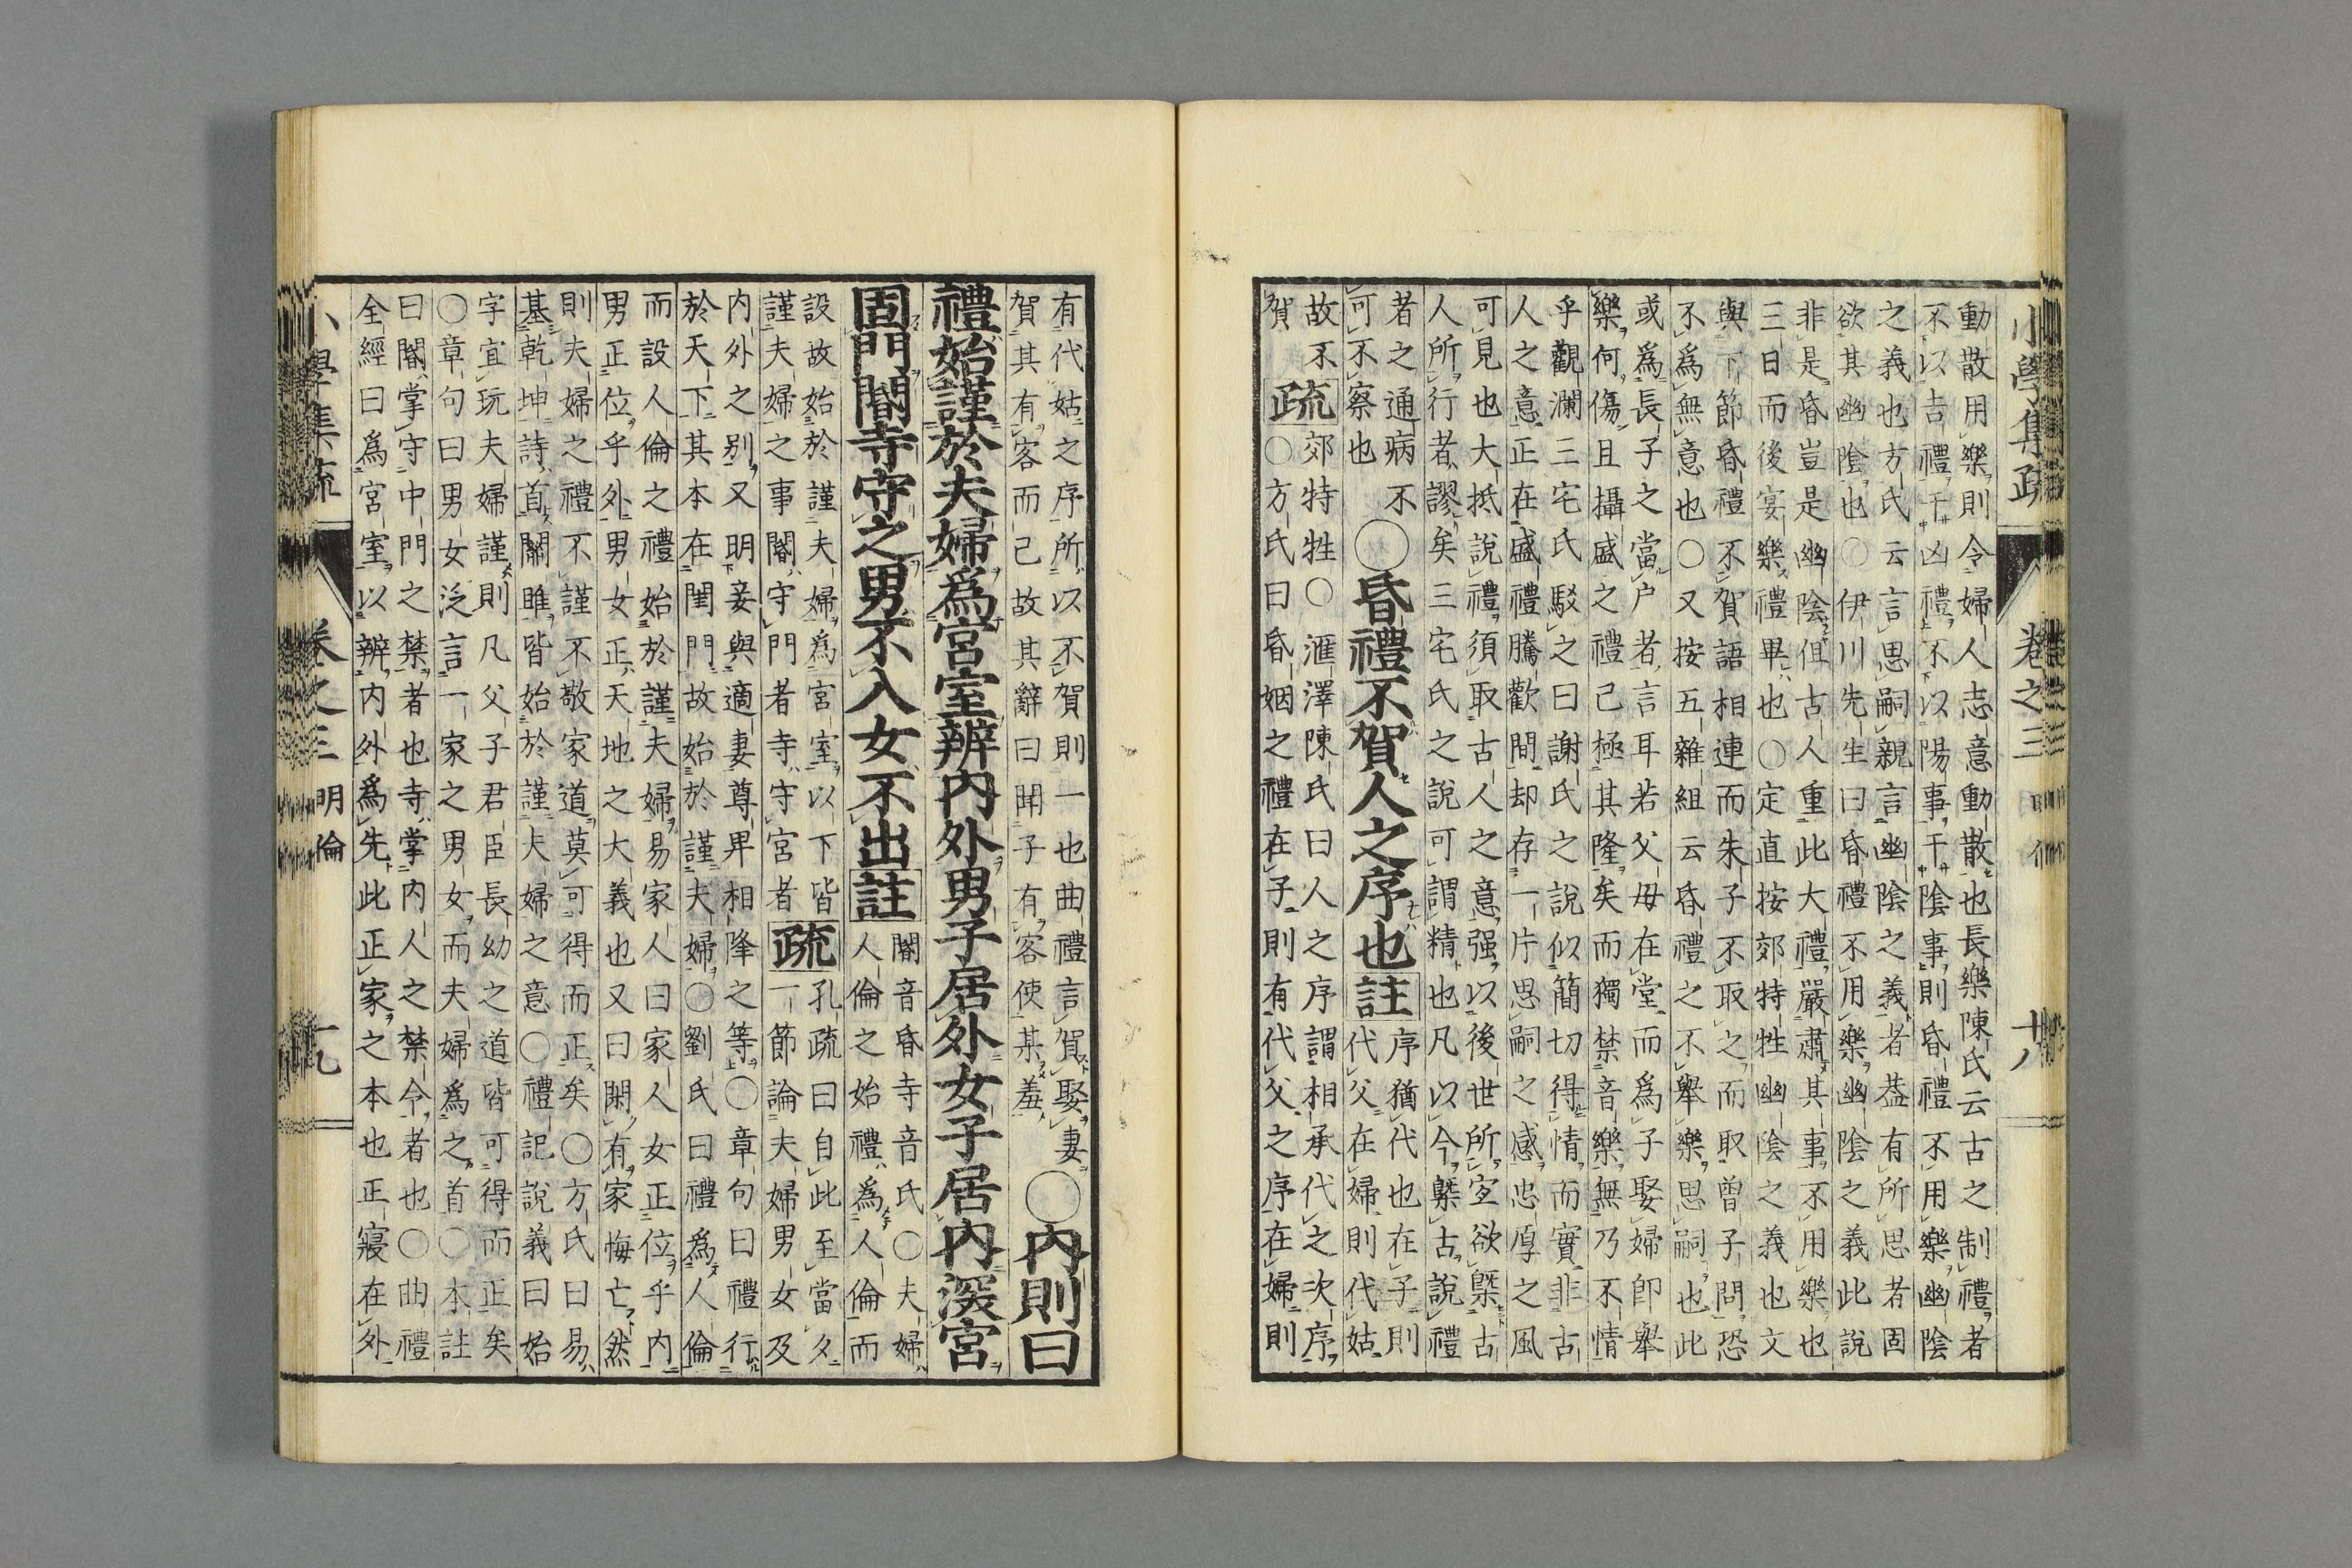 小學集疏 卷之三 十八
動散用樂則令婦人志意動散也長樂陳氏云古之制禮者
不以吉禮干凶禮不以陽事干陰事則昏禮不用樂幽陰
之義也方氏云言思嗣親言幽陰之義者葢有所思者固
欲其幽陰也〇伊川先生曰昏禮不用樂幽陰之義此說
非是昏豈是幽陰但古人重此大禮嚴肅其事不用樂也
三日而後宴樂禮畢也〇定直按郊特牲幽陰之義也文
與下節昏禮不賀語相連而朱子不取之而取曽子問恐
不爲無意也〇又按五雜組云昏禮之不舉樂思嗣也此
或爲長子之當户者言耳若父毋在堂而爲子娶婦卽舉
樂何傷且攝盛之禮己極其隆矣而獨禁音樂無乃不情
乎觀瀾三宅氏駁之曰謝氏之說似簡切得情而實非古
人之意正在盛禮騰歡間却存一片思嗣之感忠厚之風
可見也大抵說禮須取古人之意强以後世所宐欲槩古
人所行者謬矣三宅氏之說可謂精也凡以今槩古說禮
者之通病不
可不察也
〇昏禮不賀人之序也註
序猶代也在子則
代父在婦則代姑
故不
賀
疏
郊特牲〇滙澤陳氏曰人之序謂相承代之次序
〇方氏曰昏姻之禮在子則有代父之序在婦則
有代姑之序所以不賀則一也曲禮言賀娶妻
賀其有客而己故其辭曰聞子有客使某羞
〇內則曰
禮始謹於夫婦爲宮室辨內外男子居外女子居內深宮
固門閽寺守之男不入女不出註
閽音昏寺音氏〇夫婦
人倫之始禮爲人倫而
設故始於謹夫婦爲宮室以下皆
謹夫婦之事閽守門者寺守宮者
疏
孔疏曰自此至當夕
一節論夫婦男女及
內外之别又明妾與適妻尊畀相降之等〇章句曰禮行
於天下其本在閨門故始於謹夫婦〇劉氏曰禮爲人倫
而設人倫之禮始於謹夫婦易家人曰家人女正位乎內
男正位乎外男女正天地之大義也又曰閑有家悔亡然
則夫婦之禮不謹不敬家道莫可得而正矣〇方氏曰易
基乾坤詩首關雎皆始於謹夫婦之意〇禮記說義曰始
字宜玩夫婦謹則凡父子君臣長幼之道皆可得而正矣
〇章句曰男女泛言一家之男女而夫婦爲之首〇本註
曰閽掌守中門之禁者也寺掌內人之禁令者也〇曲禮
全經曰爲宮室以辨內外爲先此正家之本也正寢在外
小學集疏 卷之三 明倫 十九